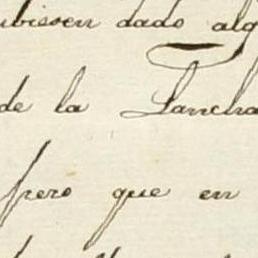 ubiesen dado alg
de la Lancha
pero que en